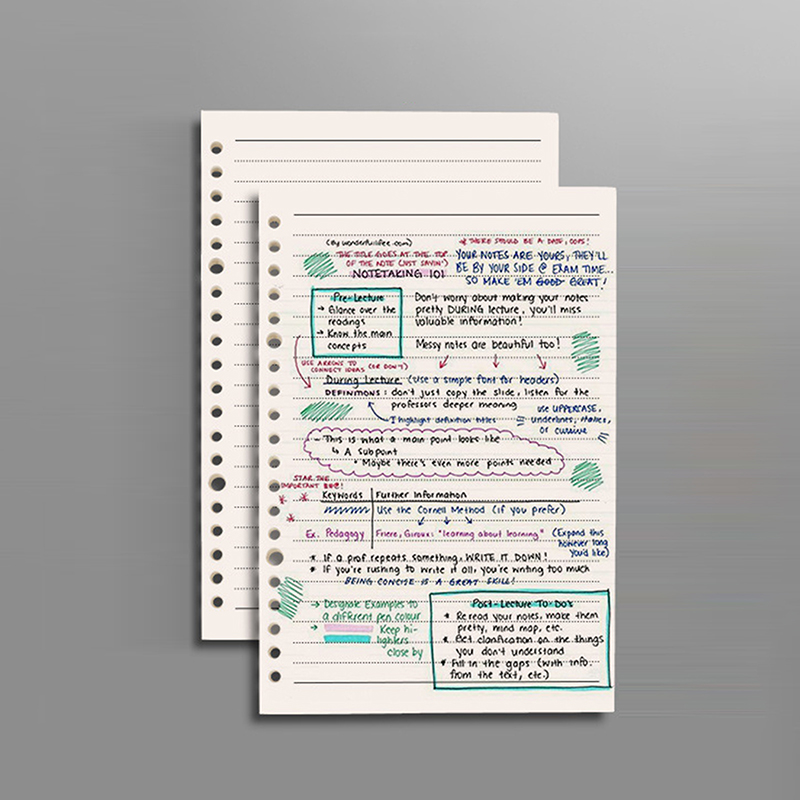 (By wonderfulifee.com)
* THERE SHOULD BE A DATE, OOPS!
THE TITLE GOES AT THE TOP
OF THE NOTE (JUST SAYIN')
NOTETAKING 101
YOUR NOTES ARE YOURS, THEY'LL
BE BY YOUR SIDE @ EXAM TIME...
SO MAKE 'EM GOOD GREAT!
Pre-Lecture
→ Glance over the
readings
→ Know the main
concepts
Don't worry about making your notes
pretty DURING lecture, you'll miss
valuable information!
Messy notes are beautiful too!
USE ARROWS TO
CONNECT IDEAS (OR DON'T)
During Lecture (Use a simple font for headers)
DEFINITIONS: don't just copy the slide, listen for the
professors deeper meaning
I highlight definition titles
use UPPERCASE,
underlines, italics,
or cursive
- This is what a main point looks like
↳ A Subpoint
• Maybe there's even more points needed
STAR THE
IMPORTANT
Keywords
Further Information
Use the Cornell Method (if you prefer)
Ex. Pedagogy
Friere, Giroux: "learning about learning"
(Expand this
however long
you'd like)
* If a prof repeats something, WRITE IT DOWN!
* If you're rushing to write it all, you're writing too much
BEING CONCISE IS A GREAT SKILL!
→ Designate Examples to
a different pen colour
→ Keep hi-
lighters
close by
Post-Lecture To Do's
* Reread your notes, make them
pretty, mind map, etc.
* Get clarification on the things
you don't understand
* Fill in the gaps (with info.
from the text, etc.)